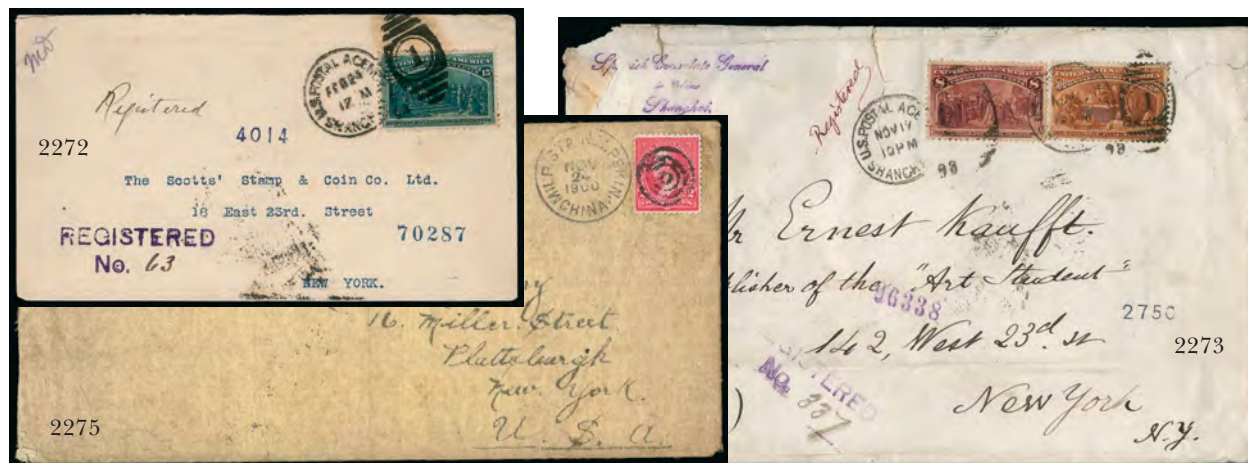 MD
Registered
U.S. POSTAL AGENCY
FEB 23
12 M
SHANGHAI
1
15
2272
4014
The Scotts' Stamp & Coin Co. Ltd.
18 East 23rd. Street
REGISTERED
No. 63
70287
NEW YORK.
NOV
24
1900
CHINA
16. Miller Street
Plattsburgh
New York.
U. S. A.
2275
Spanish Consulate General
Shanghai.
Registered
U.S. POSTAL AGE
NOV 17
10 PM
SHANGHAI
98
98
8
UNITED STATES OF AMERICA
Ernest Knaufft.
blisher of the "Art Student"
96338
2750
142, West 23d. st
2273
REGISTERED
No. 337
New York
N.Y.